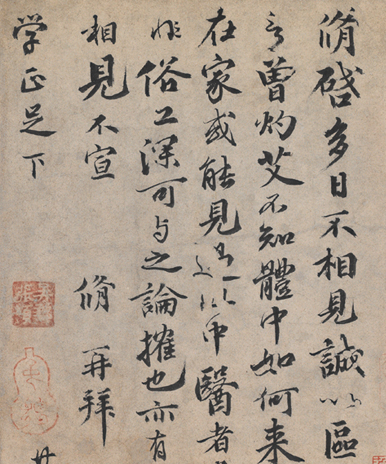 脩啓多日不相見誠以區
言曾灼艾不知體中如何来
在家或能見過此中醫者
非俗工深可与之論搉也亦有
相見不宣
脩再拜
学正足下